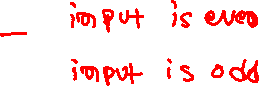 input is even
input is odd